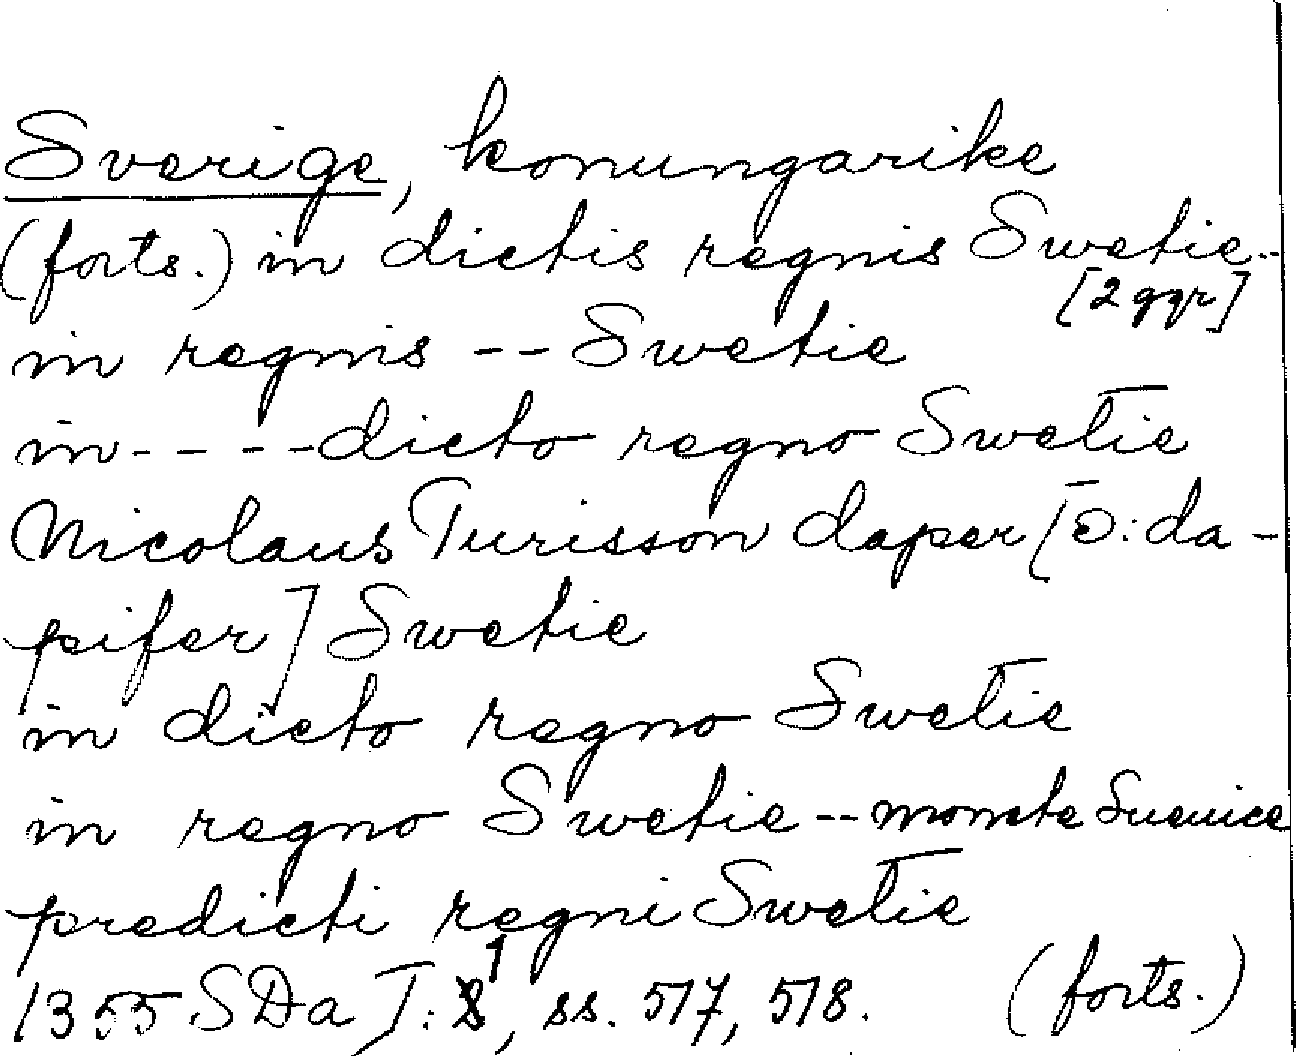 Sverige, konungarike
(forts.) in dictis regnis Swetie--
[2 ggr]
in regnis -- Swetie
in- - - -dicto regno Swetie
Nicolaus Turisson daper [ɔ: da-
pifer] Swetie
in dicto regno Swetie
in regno Swetie -- monete Sueuice
predicti regni Swetie
1355 SDa I: 1, ss. 517, 518. (forts.)